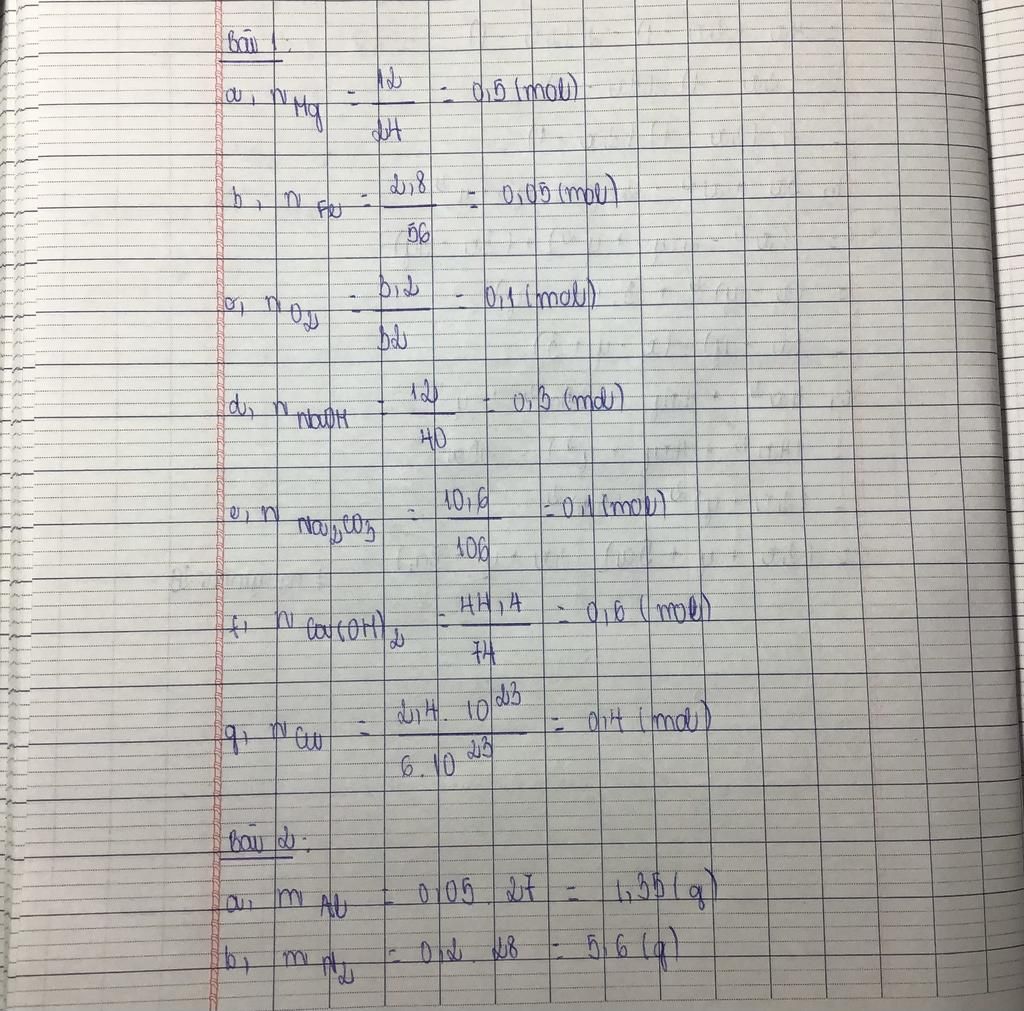 Bài 1:
a, n Mg = 12/24 = 0,5 (mol)
b, n Fe = 2,8/56 = 0,05 (mol)
c, n O2 = 3,2/32 = 0,1 (mol)
d, n NaOH = 12/40 = 0,3 (mol)
e, n Na2CO3 = 10,6/106 = 0,1 (mol)
f, n Ca(OH)2 = 44,4/74 = 0,6 (mol)
g, n Cu = 2,4 . 10^23/6.10^23 = 0,4 (mol)
Bài 2:
a, m Al = 0,05 . 27 = 1,35 (g)
b, m N2 = 0,2 . 28 = 5,6 (g)